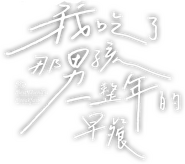 我吃了
那男孩
一整年的
早餐